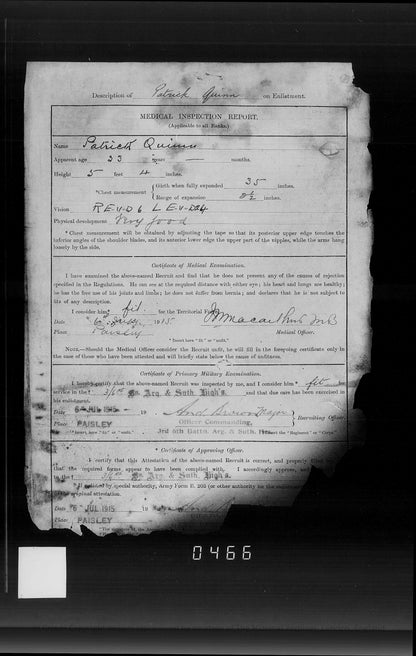 Description of Patrick Quinn on Enlistment.
MEDICAL INSPECTION REPORT.
(Applicable to all Ranks.)
Name Patrick Quinn
Apparent age 33 years — months.
Height 5 feet 4 inches.
*Chest measurement { Girth when fully expanded 35 inches.
Range of expansion 2½ inches.
Vision R.E.V-D6 L.E.V-D24
Physical development Very good
* Chest measurement will be obtained by adjusting the tape so that its posterior upper edge touches the
inferior angles of the shoulder blades, and its anterior lower edge the upper part of the nipples, while the arms hang
loosely by the side.
Certificate of Medical Examination.
I have examined the above-named Recruit and find that he does not present any of the causes of rejection
specified in the Regulations. He can see at the required distance with either eye; his heart and lungs are healthy;
he has the free use of his joints and limbs; he does not suffer from hernia; and declares that he is not subject to
fits of any description.
I consider him* fit for the Territorial Force.
Date 6 July 1915
Place Paisley Medical Officer.
* Insert here "fit" or "unfit."
NOTE.—Should the Medical Officer consider the Recruit unfit, he will fill in the foregoing certificate only in
the case of those who have been attested and will briefly state below the cause of unfitness.
Certificate of Primary Military Examination.
I hereby certify that the above-named Recruit was inspected by me, and I consider him* fit for
service in the† 3/6th Bn Arg. & Suth. High'rs. and that due care has been exercised in
his enlistment.
Date 6 JUL 1915 19 Major } Recruiting Officer.
Place PAISLEY Officer Commanding,
*Insert here "fit" or "unfit." 3rd 6th Battn. Arg. & Suth. Insert the "Regiment" or "Corps."
Certificate of Approving Officer.
I certify that this Attestation of the above-named Recruit is correct, and properly
that the required forms appear to have been complied with. I accordingly approve, and
to the† 3/6th Bn Arg. & Suth. High'rs.
* If enlisted by special authority, Army Form B. 203 (or other authority for the
original attestation.
Date 6 JUL 1915
Place PAISLEY
0466